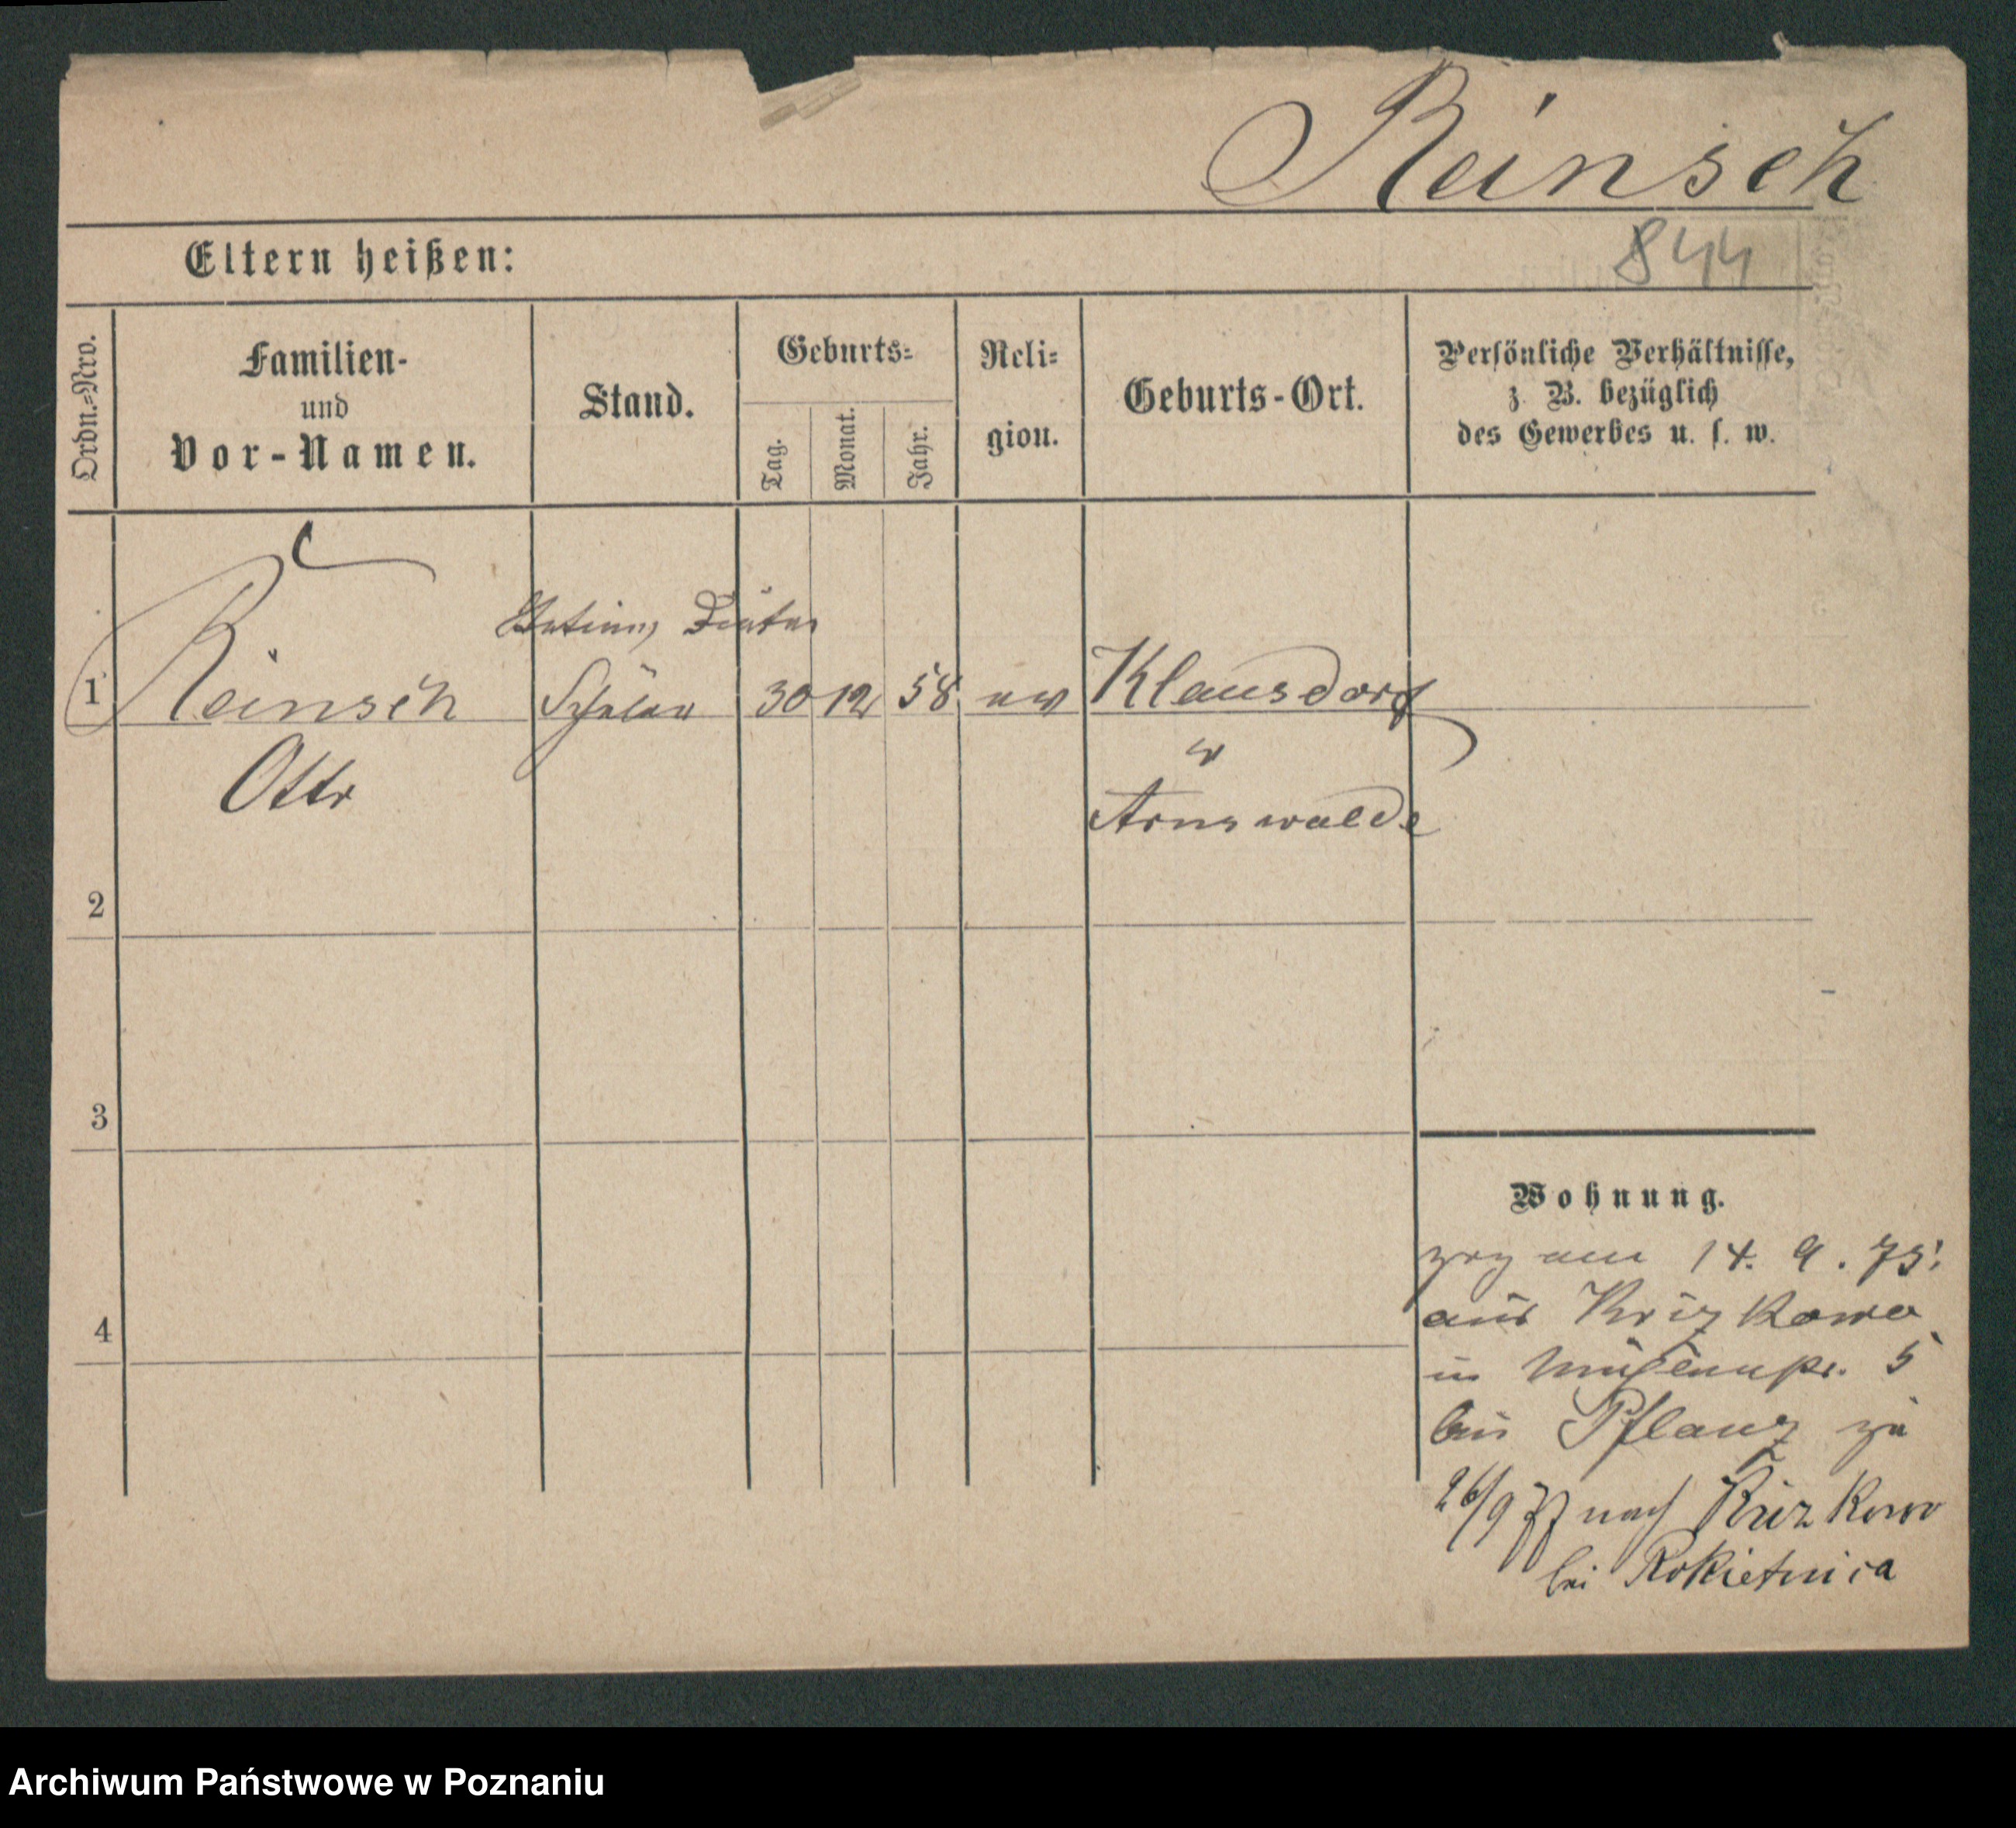 Reinsch
844
Eltern heißen:
Ordn.=Nro.
Familien-
und
Vor-Namen.
Stand.
Geburts=
Tag.
Monat.
Jahr.
Reli=
gion.
Geburts-Ort.
Persönliche Verhältnisse,
z. B. bezüglich
des Gewerbes u. s. w.
1 Reinsch Schüler 30 12 58 ev Klausdorf
Otto
Arnswalde
2
3
4
Wohnung.
zog am 14. 9. 75.
aus Krizkowo
in 5
bei Pflanz zu
26/9 77 nach Krizkowo
bei Rokietnica
Archiwum Państwowe w Poznaniu